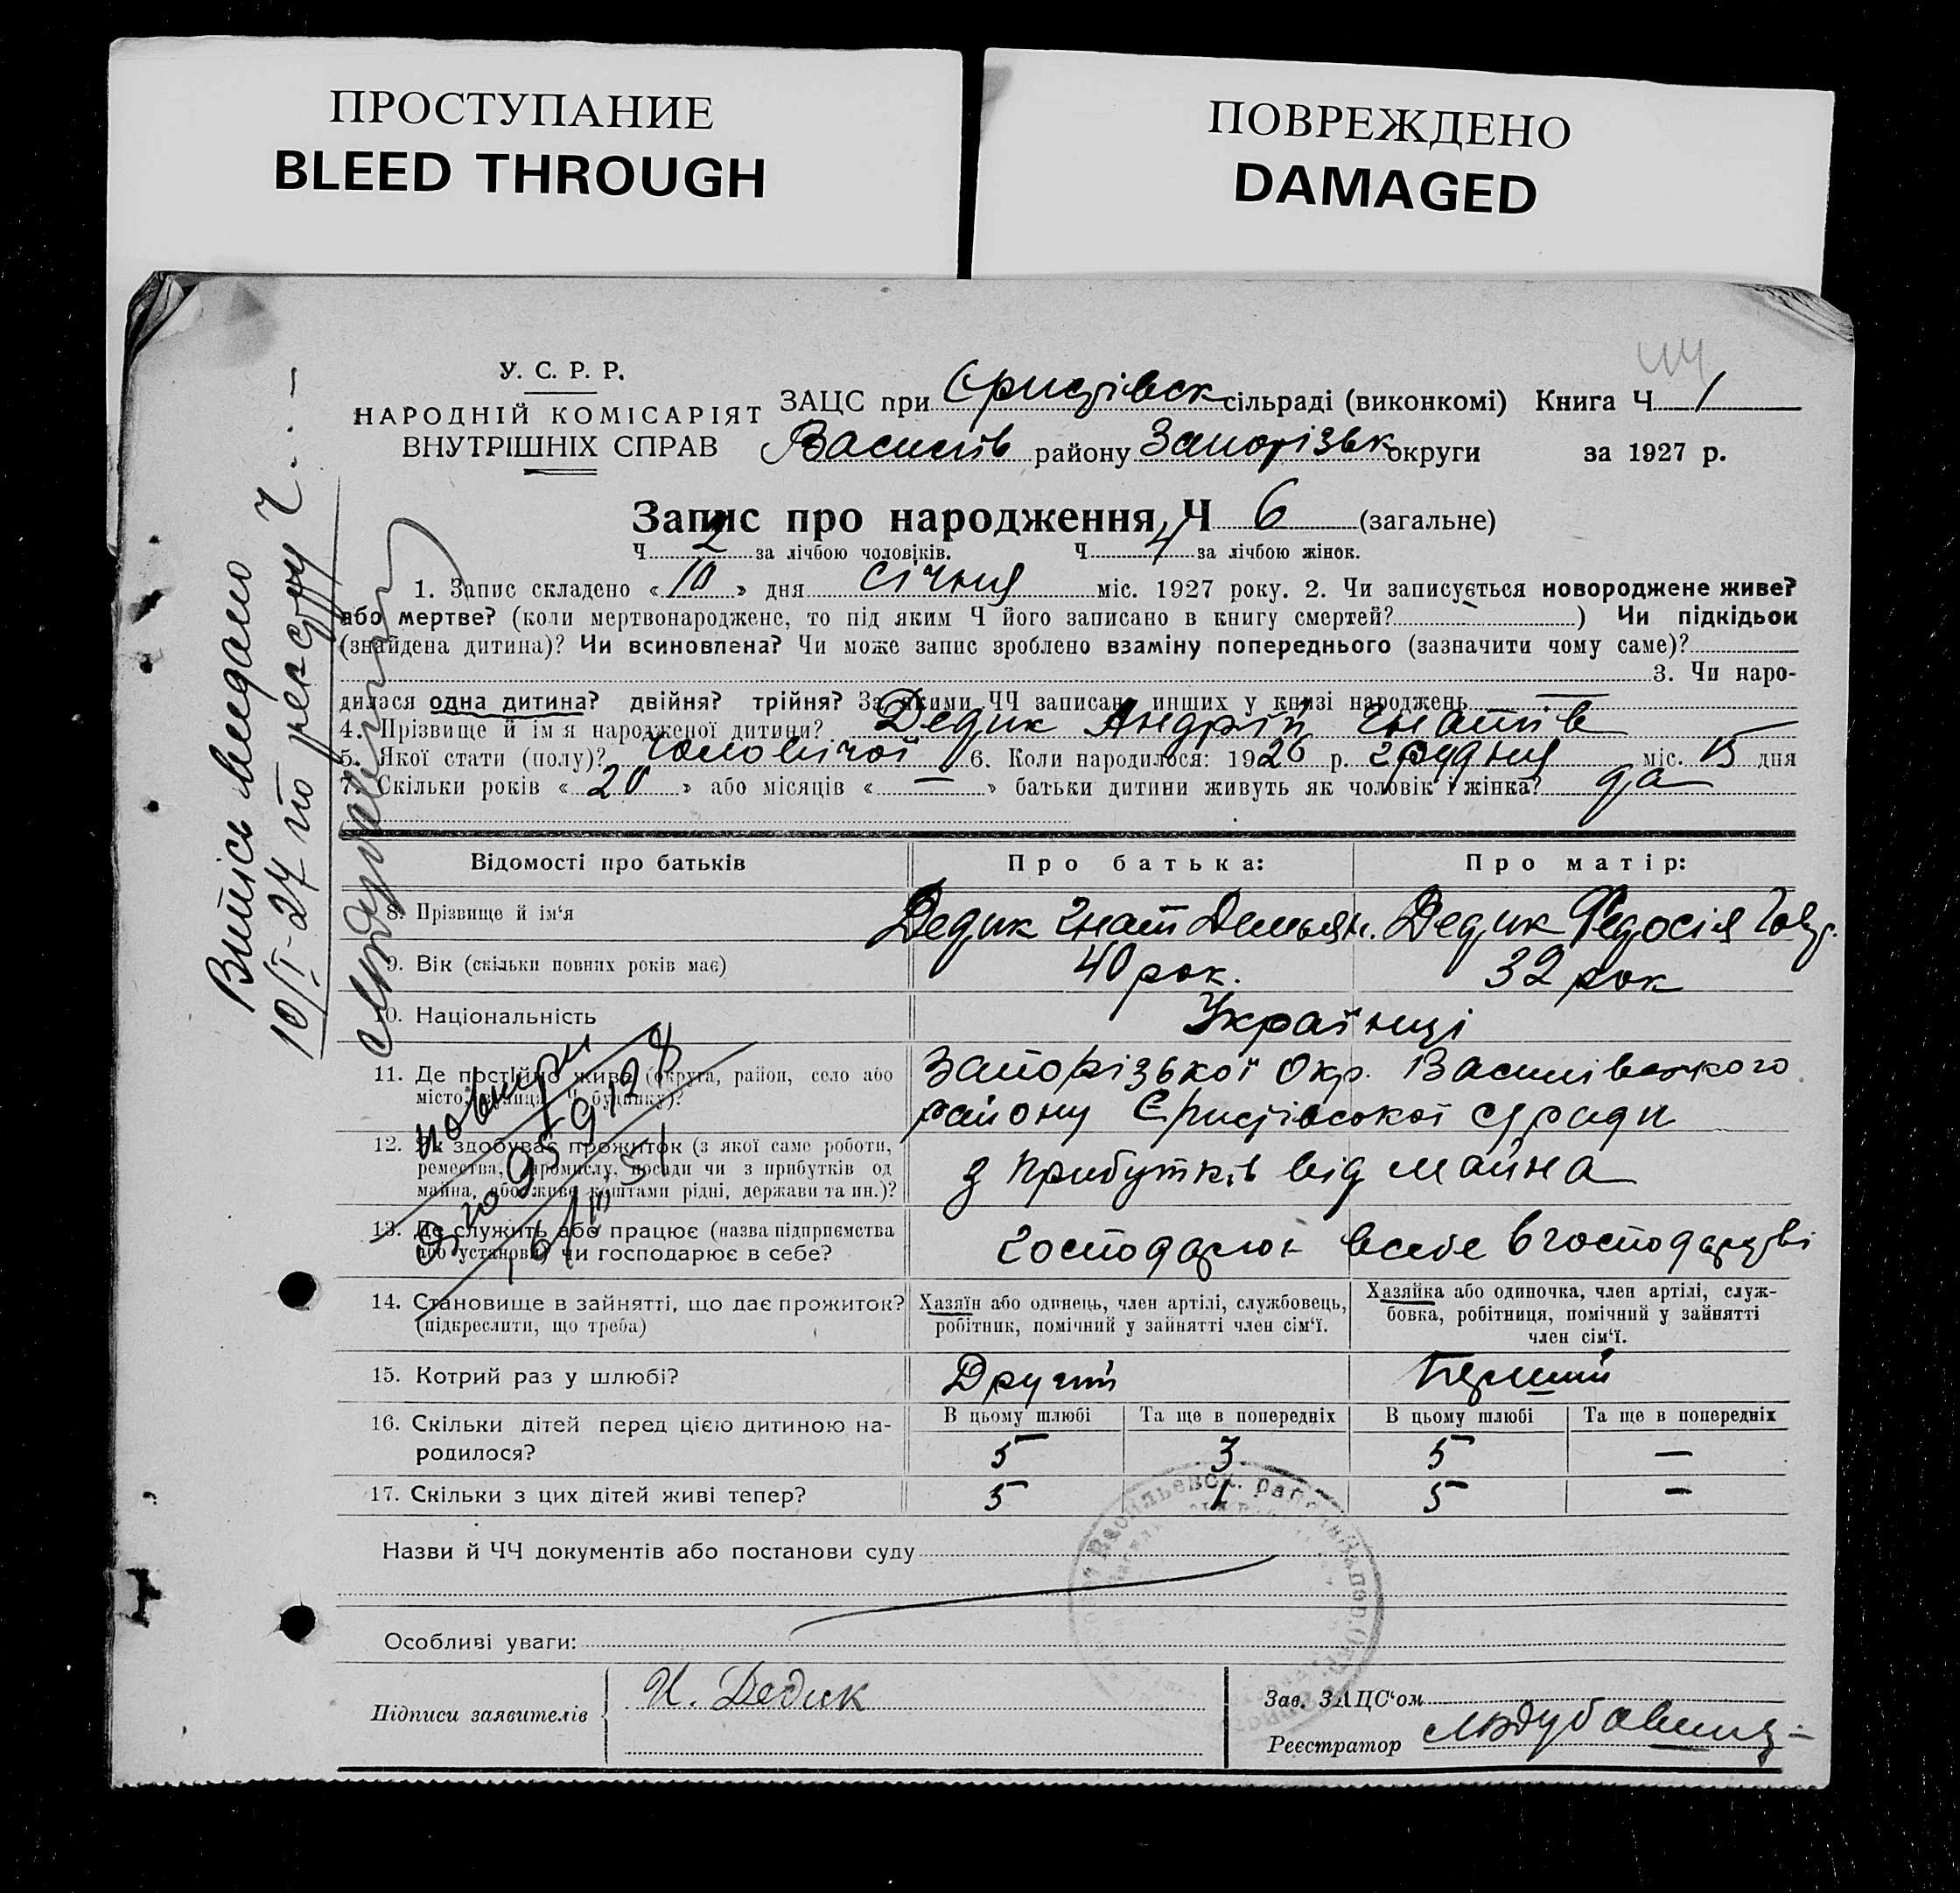 ПРОСТУПАНИЕ
BLEED THROUGH
ПОВРЕЖДЕНО
DAMAGED
У. С. Р. Р.
НАРОДНІЙ КОМІСАРІЯТ
ВНУТРІШНІХ СПРАВ
ЗАЦС при Єристівськ сільраді (виконкомі) Книга Ч 1
Василів району Запорізьк округи за 1927 р.
Запис про народження Ч 6 (загальне)
Ч 2 за лічбою чоловіків. Ч 4 за лічбою жінок.
1. Запис складено «10» дня січня міс. 1927 року. 2. Чи записується новороджене живе?
або мертве? (коли мертвонароджене, то під яким Ч його записано в книгу смертей? - ) Чи підкідьок
(знайдена дитина)? Чи всиновлена? Чи може запис зроблено взаміну попереднього (зазначити чому саме)?
3. Чи наро-
дилася одна дитина? двійня? трійня? За якими ЧЧ записано инших у книзі народжень —
4. Прізвище й ім'я народженої дитини? Дедик Андрій Гнатів
5. Якої стати (полу)? чоловічої 6. Коли народилося: 1926 р. грудня міс. 15 дня
7. Скільки років «20» або місяців «—» батьки дитини живуть як чоловік і жінка? да
Відомості про батьків
Про батька:
Про матір:
8. Прізвище й ім'я
Дедик Гнат Демьян.
Дедик Федосія
9. Вік (скільки повних років має)
40 рок.
32 рок
10. Національність
Українці
11. Де постійно живе (округа, район, село або
місто, вулиця, Ч будинку)?
Запорізької Окр. Василівського
району Єристівської с/ради
12. Як здобуває прожиток (з якої саме роботи,
ремества, промислу, посади чи з прибутків од
майна, або живе коштами рідні, держави та ин.)?
з прибутків від майна
13. Де служить або працює (назва підприємства
або установи) чи господарює в себе?
господарює всебе в господарстві
14. Становище в зайнятті, що дає прожиток?
(підкреслити, що треба)
Хазяїн або одинець, член артілі, службовець,
робітник, помічний у зайнятті член сім'ї.
Хазяйка або одиночка, член артілі, служ-
бовка, робітниця, помічний у зайнятті
член сім'ї.
15. Котрий раз у шлюбі?
Другий
Перший
16. Скільки дітей перед цією дитиною на-
родилося?
В цьому шлюбі
Та ще в попередніх
В цьому шлюбі
Та ще в попередніх
5 3 5 —
17. Скільки з цих дітей живі тепер?
5 1 5 —
Назви й ЧЧ документів або постанови суду
Особливі уваги:
Підписи заявителів
И. Дедик
Зав. ЗАЦС'ом
Реєстратор
Випісь видано
10/I-27 по реєстру Ч. . . —